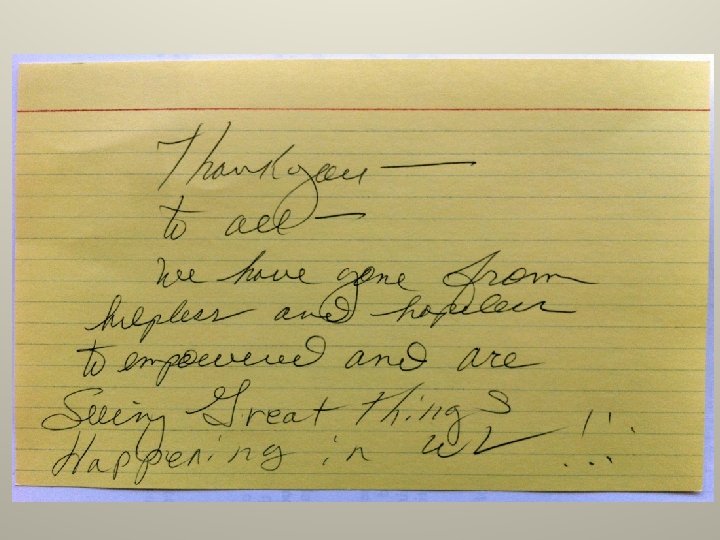 Thank you —
to all —
We have gone from
helpless and hopeless
to empowered and are
Seeing Great Things
Happening in WV !!!